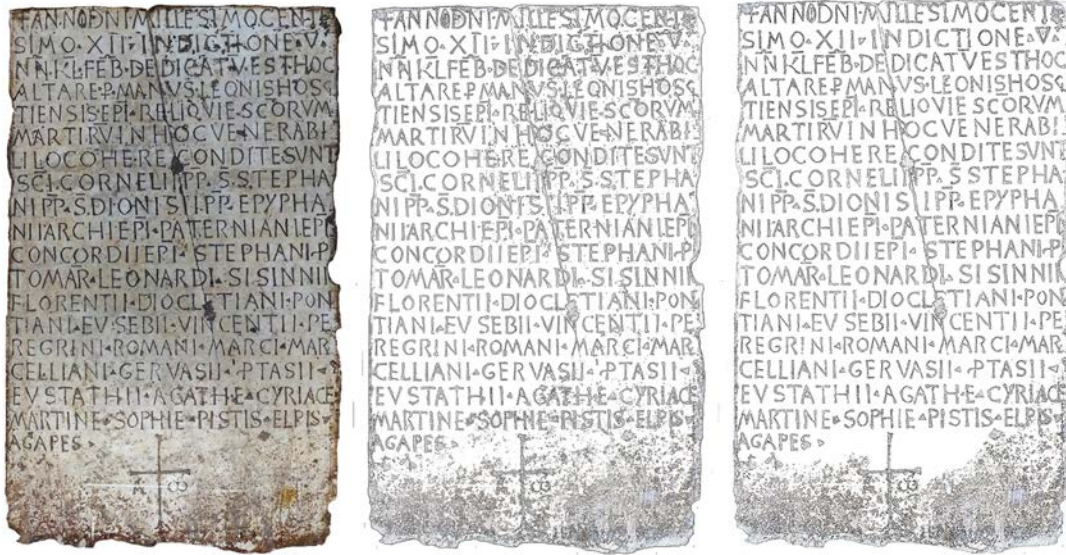 +ANNODNI·MILLESIMOCENT
SIMO·XII·INDICTIONE·V·
NN̄KLFEB·DEDICATVESTHOC
ALTARE·P·MANVS·LEONISHOSC
TIENSISEPĪ·RELIQVIESCORVM
MARTIRVINHOCVENERABI
LILOCOHERECONDITESVNT
SCI·CORNELIIPP·S·STEPHA
NIPP·S·DIONISIIPP·EPYPHA
NIIARCHIEPI·PATERNIANIEPI
CONCORDIIEPI·STEPHANI·P
TOMAR·LEONARDI·SISINNII
FLORENTII·DIOCLETIANI·PON
TIANI·EVSEBII·VINCENTII·PE
REGRINI·ROMANI·MARCI·MAR
CELLIANI·GERVASII·PTASII·
EVSTATHII·AGATHE·CYRIACE
MARTINE·SOPHIE·PISTIS·ELPIS·
AGAPES·
+ANNODNI·MILLESIMOCENT
SIMO·XII·INDICTIONE·V·
NN̄KLFEB·DEDICATVESTHOC
ALTARE·P·MANVS·LEONISHOSC
TIENSISEPĪ·RELIQVIESCORVM
MARTIRVINHOCVENERABI
LILOCOHERECONDITESVNT
SCI·CORNELIIPP·S·STEPHA
NIPP·S·DIONISIIPP·EPYPHA
NIIARCHIEPI·PATERNIANIEPI
CONCORDIIEPI·STEPHANI·P
TOMAR·LEONARDI·SISINNII
FLORENTII·DIOCLETIANI·PON
TIANI·EVSEBII·VINCENTII·PE
REGRINI·ROMANI·MARCI·MAR
CELLIANI·GERVASII·PTASII·
EVSTATHII·AGATHE·CYRIACE
MARTINE·SOPHIE·PISTIS·ELPIS·
AGAPES·
+ANNODNI·MILLESIMOCENT
SIMO·XII·INDICTIONE·V·
NN̄KLFEB·DEDICATVESTHOC
ALTARE·P·MANVS·LEONISHOSC
TIENSISEPĪ·RELIQVIESCORVM
MARTIRVINHOCVENERABI
LILOCOHERECONDITESVNT
SCI·CORNELIIPP·S·STEPHA
NIPP·S·DIONISIIPP·EPYPHA
NIIARCHIEPI·PATERNIANIEPI
CONCORDIIEPI·STEPHANI·P
TOMAR·LEONARDI·SISINNII
FLORENTII·DIOCLETIANI·PON
TIANI·EVSEBII·VINCENTII·PE
REGRINI·ROMANI·MARCI·MAR
CELLIANI·GERVASII·PTASII·
EVSTATHII·AGATHE·CYRIACE
MARTINE·SOPHIE·PISTIS·ELPIS·
AGAPES·